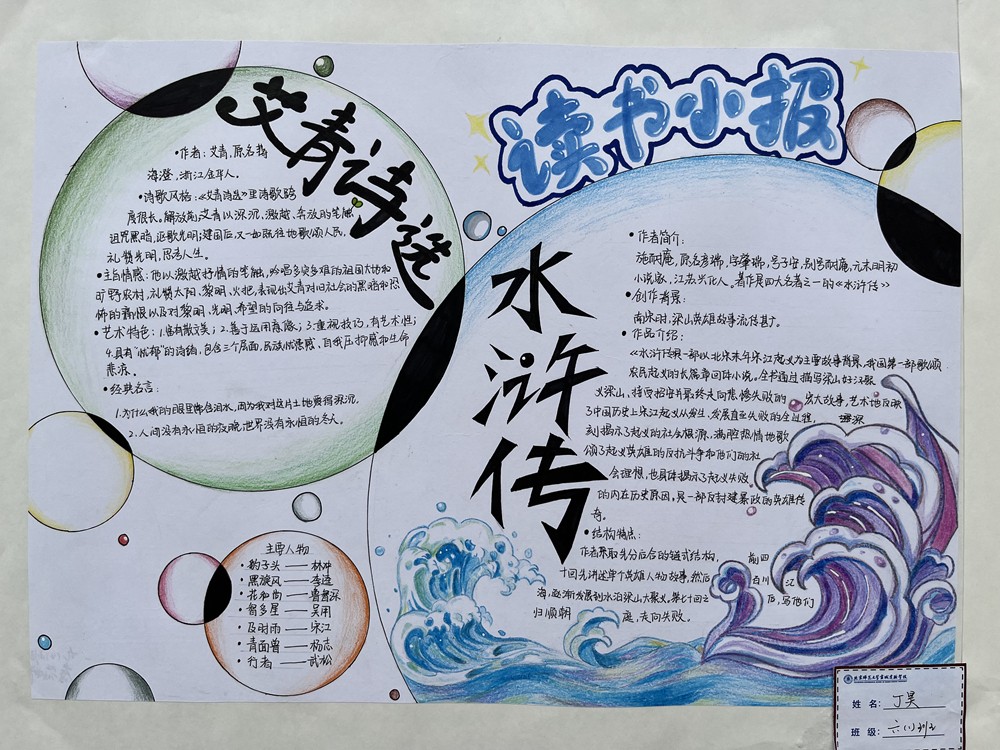 读书小报
艾青诗选
•作者：艾青，原名蒋
海澄，浙江金华人。
•诗歌风格：《艾青诗选》里诗歌跨
度很长。解放前，艾青以深沉、激越、奔放的笔触
诅咒黑暗，讴歌光明；建国后，又一如既往地歌颂人民，
礼赞光明，思考人生。
•主旨情感：他以激越抒情的笔触，吟唱多灾多难的祖国大地和
旷野农村，礼赞太阳、黎明、火把，表现出艾青对旧社会的黑暗和恐
怖的痛恨以及对黎明、光明、希望的向往与追求。
•艺术特色：1.富有散文美；2.善于运用意象；3.重视技巧，有艺术性；
4.具有“忧郁”的诗绪，包含三个层面，民族忧患感、自我压抑感和生命
悲哀。
•经典名言：
1.为什么我的眼里常含泪水，因为我对这片土地爱得深沉。
2.人间没有永恒的夜晚，世界没有永恒的冬天。
主要人物
•豹子头——林冲
•黑旋风——李逵
•花和尚——鲁智深
•智多星——吴用
•及时雨——宋江
•青面兽——杨志
•行者——武松
水浒传
•作者简介：
施耐庵，原名彦端，字肇瑞，号子安，别号耐庵，元末明初
小说家，江苏兴化人。著作是四大名著之一的《水浒传》
•创作背景：
南宋时，梁山英雄故事流传甚广。
•作品介绍：
《水浒传》是一部以北宋末年宋江起义为主要故事背景，我国第一部歌颂
农民起义的长篇章回体小说。全书通过描写梁山好汉聚
义梁山、接受招安并最终走向悲惨失败的 宏大故事，艺术地反映
了中国历史上宋江起义从发生、发展直至失败的全过程， 深
刻揭示了起义的社会根源，满腔热情地歌
颂了起义英雄的反抗斗争和他们的社
会理想，也具体揭示了起义失败
的内在历史原因，是一部反封建暴政的英雄传
奇。
•结构特点：
作者采取先分后合的链式结构， 前四
十回先讲述单个英雄人物故事，然后 百川 江
海，逐渐发展到水泊梁山大聚义，第七十回之 后，写他们
归顺朝 庭，走向失败。
姓名：丁昊
班级：六(1)班